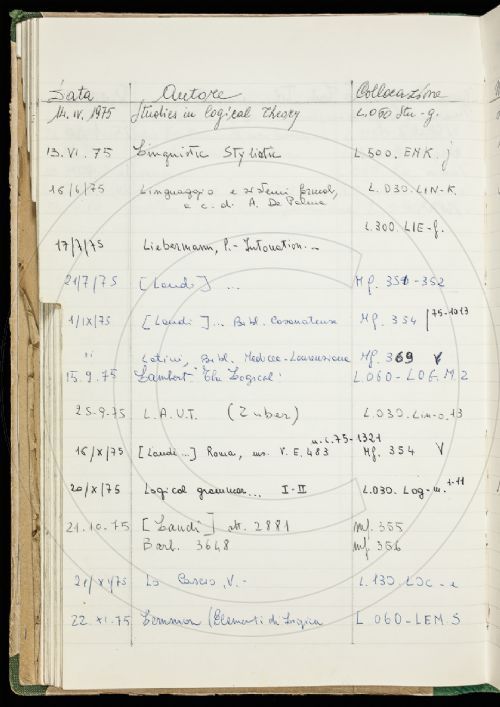 Data Autore Collocazione
14. IV. 1975 Studies in logical theory L.060 Stu-g.
13. VI. 75 Linguistic Stylistic L 500. ENK. j
16/6/75 Linguaggio e sistemi formal, L. 030. LIN-K.
a c. di A. De Palma
L. 300. LIE-f.
17/7/75 Liebermann, P.- Intonation. --
21/7/75 [Laudi] ... Mf. 351-352
1/IX/75 [Laudi] ... Bibl. Casanatense Mf. 354 75-1013
" Latini, Bibl. Medicea-Laurenziana Mf. 369 V
15.9.75 Lambert The Logical L.060-LOG.M.2
25.9.75 L.A.U.T. (Zuber) L.030. Lin-o.13
16/X/75 [Laudi...] Roma, ms. V.E. 483 n.i. 75-1321 Mf. 354 V
20/X/75 Logical grammar... I-II L.030. Log-m. I-II
21.10.75 [Laudi] att. 2881 mf. 355
Barb. 3648 mf. 356
21/XI/75 Lo Cascio, V.- L. 130. LOC-
22.XI.75 Lemmon (Elementi di Logica L.060-LEM.S